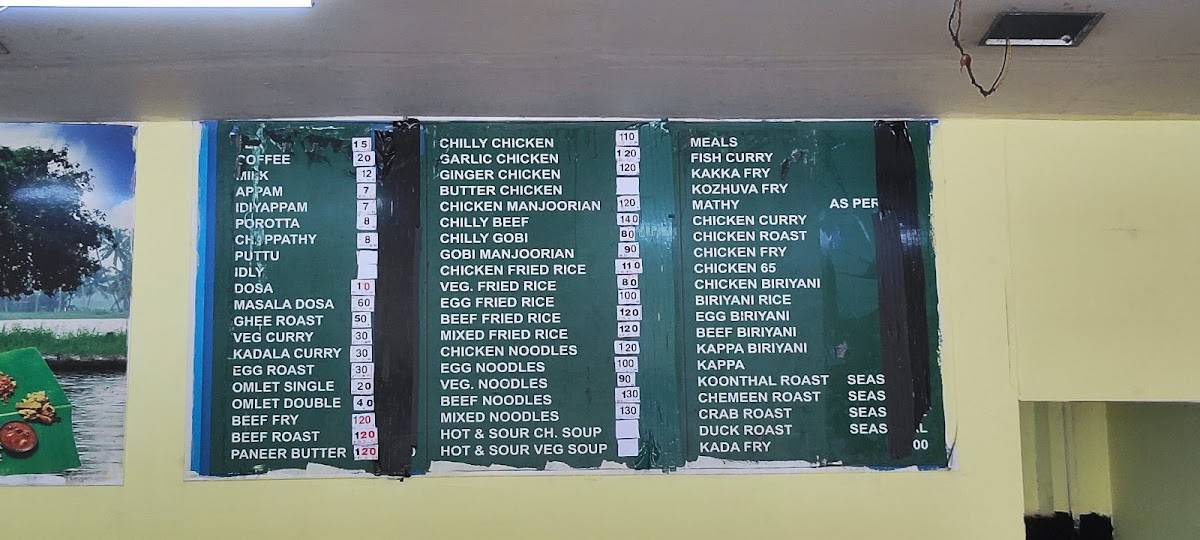 15
COFFEE 20
MILK 12
APPAM 7
IDIYAPPAM 7
POROTTA 8
CH PPATHY 8
PUTTU
IDLY
DOSA 10
MASALA DOSA 60
GHEE ROAST 50
VEG CURRY 30
KADALA CURRY 30
EGG ROAST 30
OMLET SINGLE 20
OMLET DOUBLE 40
BEEF FRY 120
BEEF ROAST 120
PANEER BUTTER 120
CHILLY CHICKEN 110
GARLIC CHICKEN 120
GINGER CHICKEN 120
BUTTER CHICKEN
CHICKEN MANJOORIAN 120
CHILLY BEEF 140
CHILLY GOBI 80
GOBI MANJOORIAN 90
CHICKEN FRIED RICE 110
VEG. FRIED RICE 80
EGG FRIED RICE 100
BEEF FRIED RICE 120
MIXED FRIED RICE 120
CHICKEN NOODLES 120
EGG NOODLES 100
VEG. NOODLES 90
BEEF NOODLES 130
MIXED NOODLES 130
HOT & SOUR CH. SOUP
HOT & SOUR VEG SOUP
MEALS
FISH CURRY
KAKKA FRY
KOZHUVA FRY
MATHY AS PER
CHICKEN CURRY
CHICKEN ROAST
CHICKEN FRY
CHICKEN 65
CHICKEN BIRIYANI
BIRIYANI RICE
EGG BIRIYANI
BEEF BIRIYANI
KAPPA BIRIYANI
KAPPA
KOONTHAL ROAST SEAS
CHEMEEN ROAST SEAS
CRAB ROAST SEAS
DUCK ROAST SEAS AL
KADA FRY 00